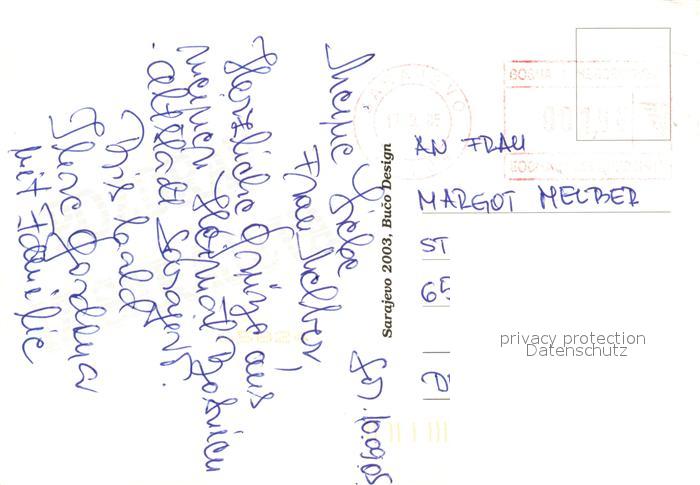 Meine Liebe
Frau Melber,
Herzliche Grüsse aus
meiner Heimat Bosnien
Altstadt Sarajevo.
Bis bald
Ihre Gordana
mit Familie
Sarajevo 2003, Bučo Design
SARAJEVO
BOSNA I HERCEGOVINA
AN FRAU
MARGOT MELBER
ST
65
privacy protection
Datenschutz